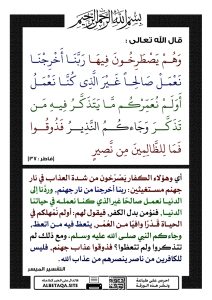 بسم الله الرحمن الرحيم
قال الله تعالى :
وَهُمْ يَصْطَرِخُونَ فِيهَا رَبَّنَا أَخْرِجْنَا
نَعْمَلْ صَالِحًا غَيْرَ الَّذِي كُنَّا نَعْمَلُ
أَوَلَمْ نُعَمِّرْكُم مَّا يَتَذَكَّرُ فِيهِ مَن
تَذَكَّرَ وَجَاءَكُمُ النَّذِيرُ فَذُوقُوا
فَمَا لِلظَّالِمِينَ مِن نَّصِيرٍ
[فاطر : ٣٧]
أي وهؤلاء الكفار يَصْرُخون من شدة العذاب في نار
جهنم مستغيثين: ربنا أخرجنا من نار جهنم, وردَّنا إلى
الدنيا نعمل صالحًا غير الذي كنا نعمله في حياتنا
الدنيا, فنؤمن بدل الكفر, فيقول لهم: أولم نُمهلكم في
الحياة قَدْرًا وافيًا من العُمُر, يتعظ فيه من اتعظ,
وجاءكم النبي صلى الله عليه وسلم, ومع ذلك لم
تتذكروا ولم تتعظوا؟ فذوقوا عذاب جهنم, فليس
للكافرين من ناصر ينصرهم من عذاب الله.
التفسير الميسر
ALBETAQA.SITE